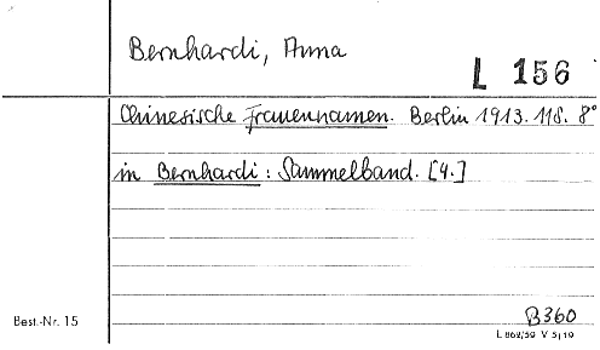 Bernhardi, Anna
L 156
Chinesische Frauennamen. Berlin 1913. 11S. 8°
in Bernhardi: Sammelband. [4.]
Best.-Nr. 15
B360
L 868/59 V 5/10